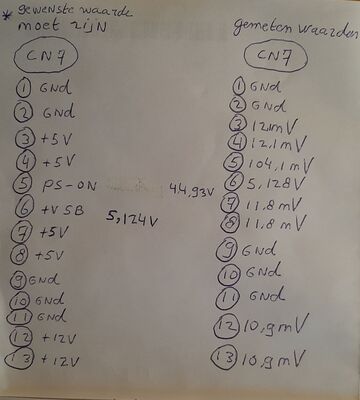 * gewenste waarde
moet zijn
CN7
1 GNd
2 GNd
3 +5V
4 +5V
5 PS-ON 44,93V
6 +V SB 5,124V
7 +5V
8 +5V
9 GNd
10 GNd
11 GNd
12 +12V
13 +12V
gemeten waarden
CN7
1 GNd
2 GNd
3 12,1mV
4 12,1mV
5 104,1mV
6 5,128V
7 11.8mV
8 11.8mV
9 GNd
10 GNd
11 GNd
12 10,9mV
13 10,9mV